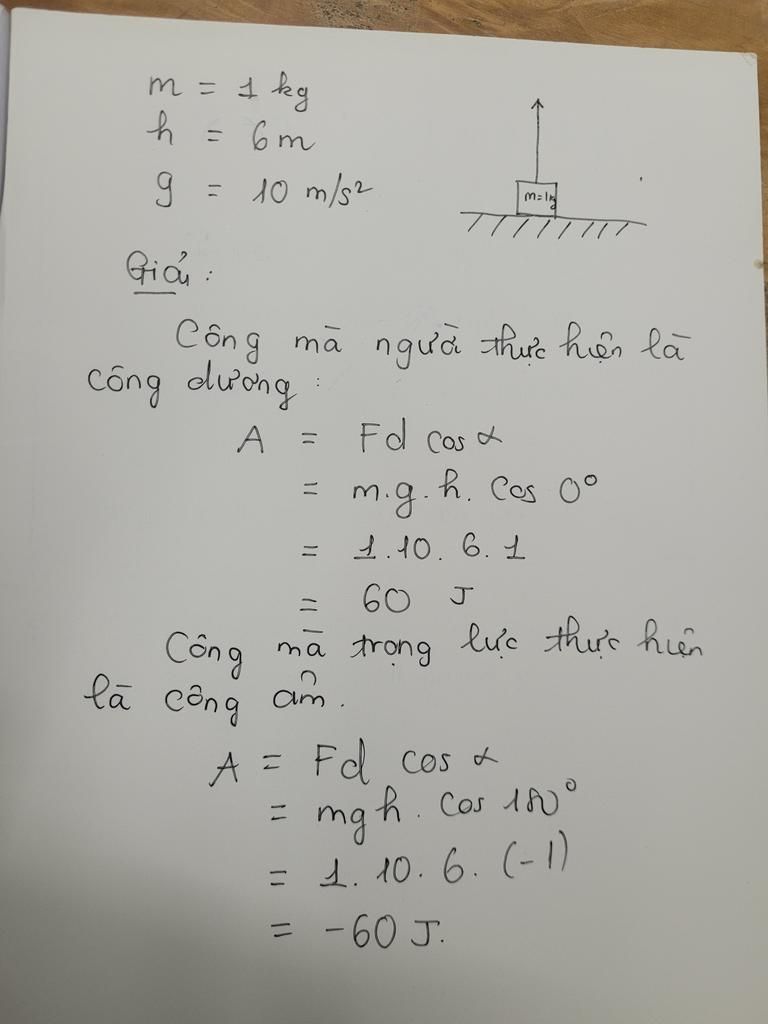 m = 1 kg
h = 6m
g = 10 m/s²
m=1kg
Giải :
Công mà người thực hiện là
công dương :
A = Fd cos α
= m.g.h. cos 0°
= 1.10. 6. 1
= 60 J
Công mà trọng lực thực hiện
là công âm.
A = Fd cos α
= mgh. cos 180°
= 1. 10. 6. (-1)
= -60 J.